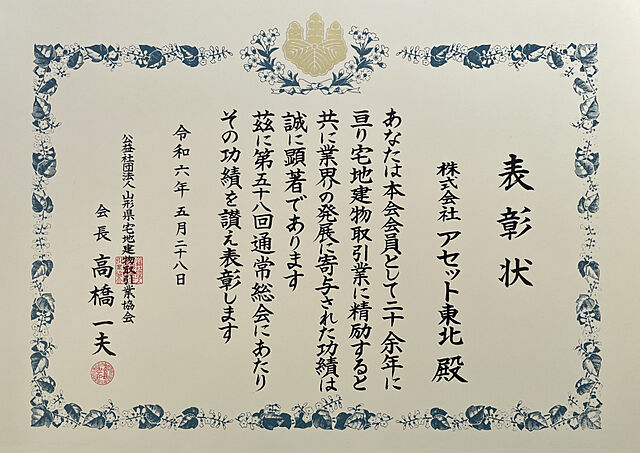 表彰状
株式会社 アセット東北 殿
あなたは本会会員として二十余年に
亘り宅地建物取引業に精励すると
共に業界の発展に寄与された功績は
誠に顕著であります
茲に第五十八回通常総会にあたり
その功績を讃え表彰します
令和六年五月二十八日
公益社団法人山形県宅地建物取引業協会
会長 高橋一夫